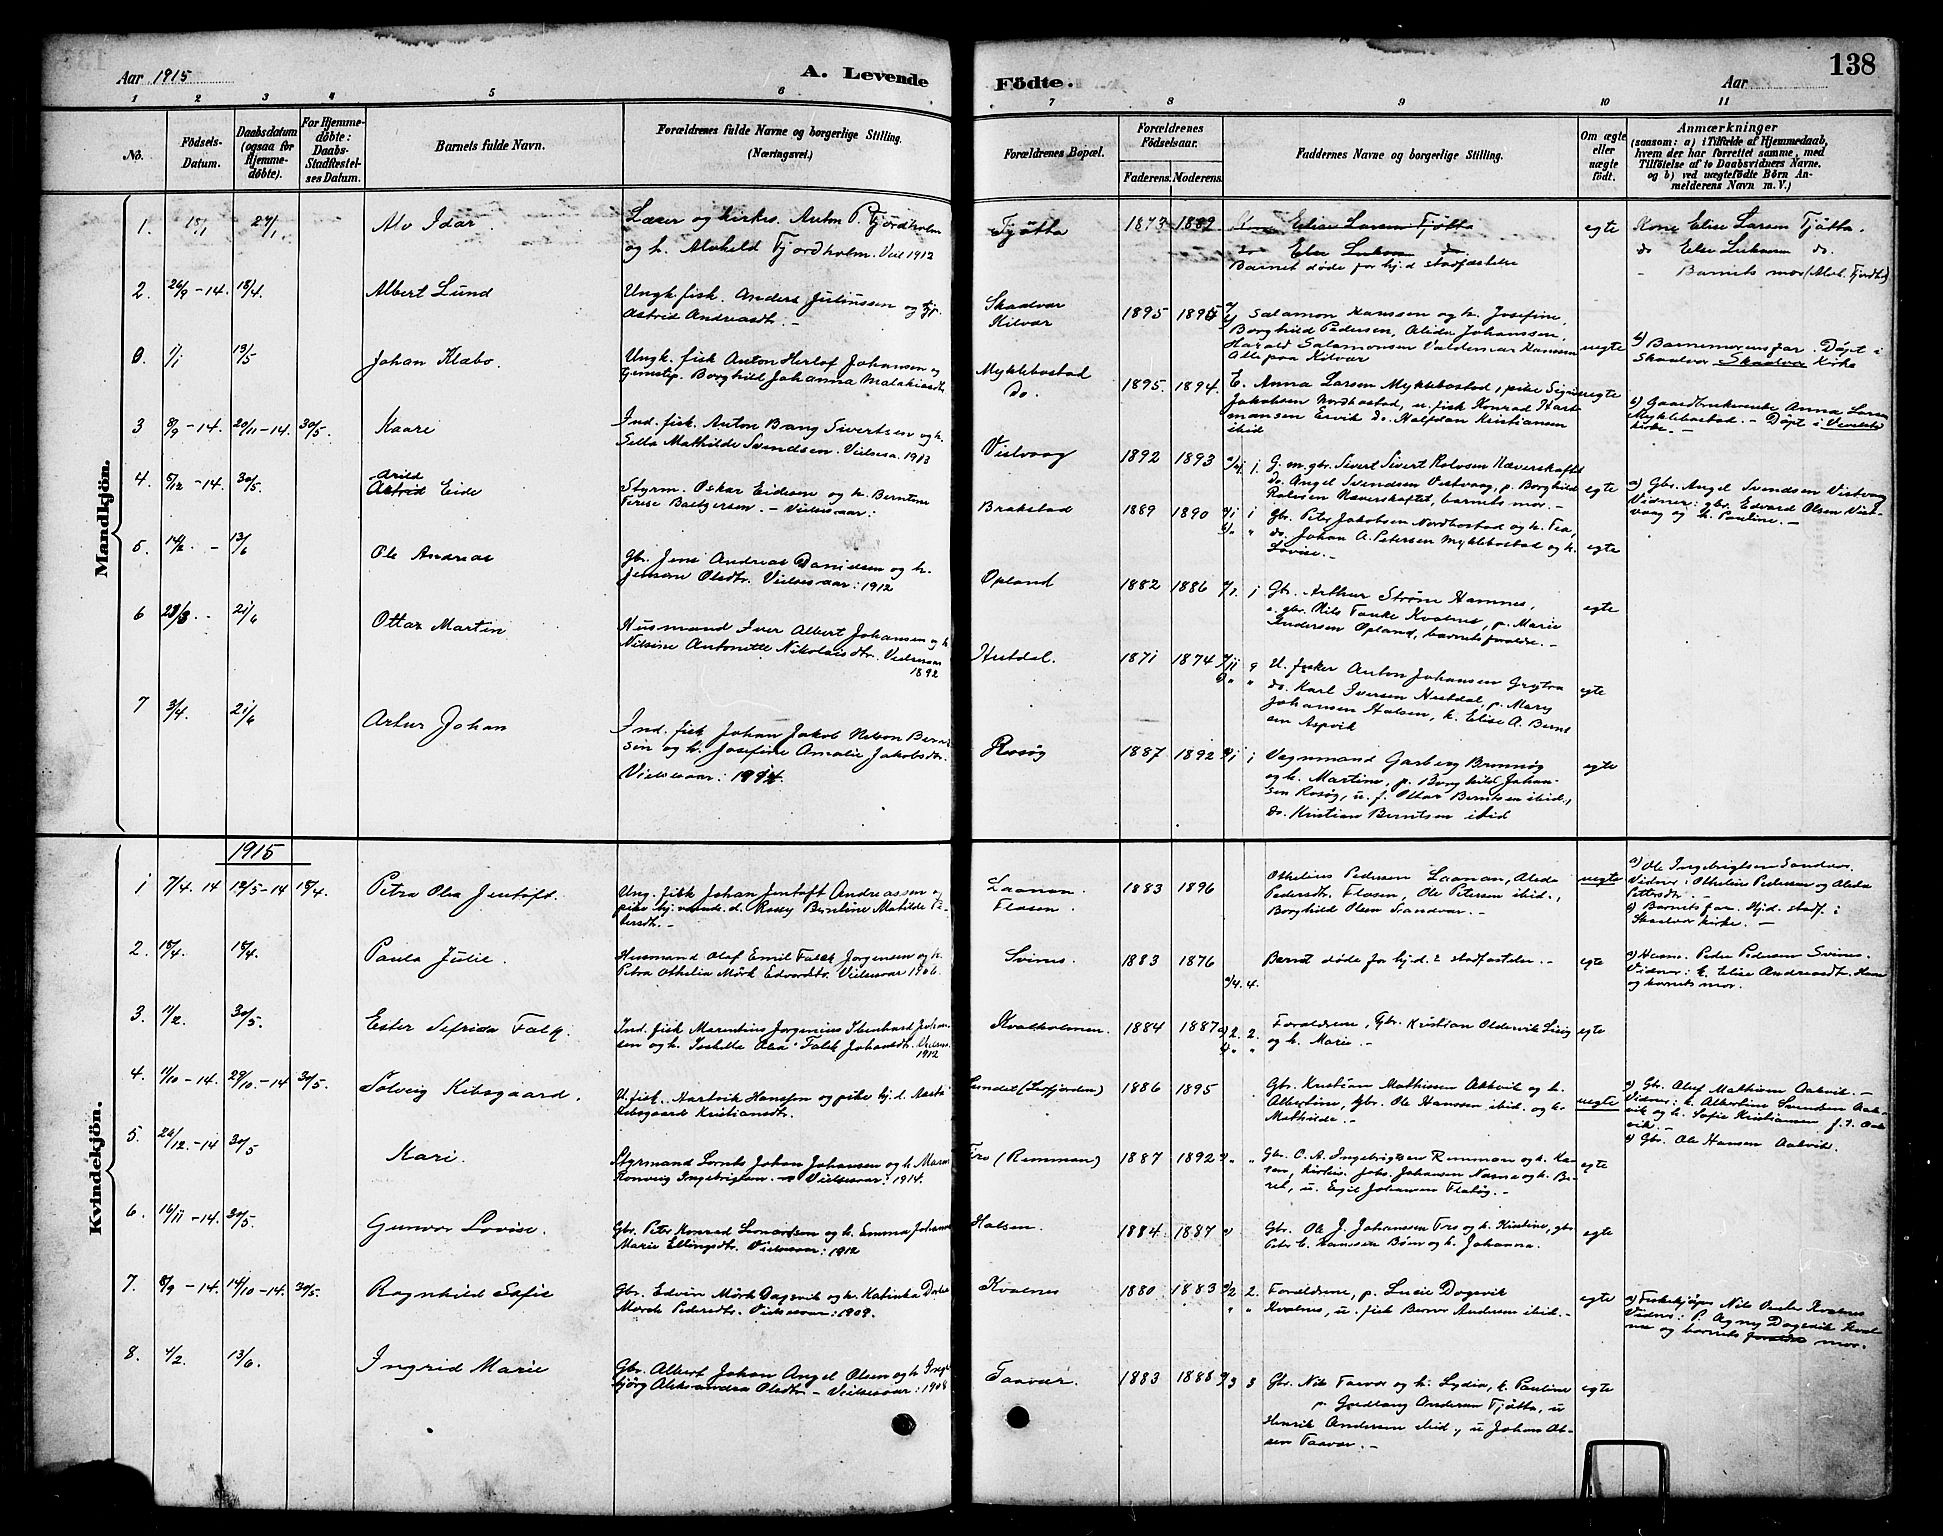 Aar 1915
A. Levende
Födte.
Aar
138
1 2 3 4 5 6 7 8 9 10 11
No.
Födsels-
Datum.
Daabsdatum
(ogsaa for
Hjemme-
döbte).
For Hjemme-
döbte:
Daabs-
Stadfæstel-
ses Datum.
Barnets fulde Navn.
Forældrenes fulde Navne og borgerlige Stilling.
(Næringsvei.)
Forældrenes Bopæl.
Forældrenes
Födselsaar.
Faderens. Moderens.
Faddernes Navne og borgerlige Stilling.
Om ægte
eller
uægte
födt.
Anmærkninger
(saasom: a) i Tilfælde af Hjemmedaab,
hvem der har forrettet samme, med
Tilföielse af to Daabsvidners Navne.
og b) ved uægtefödte Börn An-
melderens Navn m. V.)
Mandkjön.
1. Alv Idar
Lærer og kirkes. Anton P. Fjordholm
og h. Alvhild Fjordholm. Viel 1912
Tjøtta 1873 1882
Kone Elise Larsen Tjøtta
do Else
Barnet døde før hj.d. stadfæstelse
egte
Kone Elise Larsen Tjøtta.
do Else do.
Barnets mor
2. 26/9 - 14. 18/4. Albert Lund
Ungk. fisk. Anders Juliussen og
Astrid Andreasdt. -
Skaalvær
Kilvær
1895
Salamon Hanssen og h. Josefine,
Borghild Pedersen, Alida Johanssen,
Harald Salamonsen Valdemar Hanssen
Alle paa Kilvær
uegte
b) Barnemorens far. Døpt i
Skaalvær Skaalvær Kirke
0. 1/1 Johan Klæbo.
Ungk. fisk Anton Herlof Johansen og
Borghild Johanna Malakiasdt.
Myklebostad
do.
1895. 1894.
E. Anna Larsen Myklebostad, pike Signe
Jakobsen Nordbostad, u. fisk Konrad Hart-
mansen Ervik do. Halfdan Kristiansen
ibid
uegte
b) Gaardbrukerenke Anna Larsen
Myklebostad. - Døpt i
kirke. -
3 8/9 - 14. 20/11 - 14 30/5. Kaare
Ind. fisk. Anton Bang Sivertsen og h.
Sella Mathilde Svendsen. Vielsesa. 1913
Vistvaag 1892 1893
G. m. gbr. Sivert Sivert Rolvsen Næverskaftet
do. Angel Svendsen Vistvaag, p. Borghild
Rolvsen Næverskaftet, barnets mor. -
egte
a) Gbr. Angel Svendsen Vistvaag
Vidner: gbr. Edvard Olsen Vist-
vaag og h. Pauline. -
4. 5/12 - 14. 30/5. Arild
Astrid Eide
Styrm. Oskar Eidesen og h. Berntine
Terese Bertgersen. - Vielsesaar:
Brakstad 1889 1890
Gbr. Peter Jakobsen Nordbostad og h. Tea,
do. Johan A. Petersen Myklebostad og h.
Lovise. -
egte
5. 14/2 - 13/6 Ole Andreas
Gbr. Jens Andreas Danielsen og h.
Jensine Olsdtr. Vielsesaar: 1912
Opland 1882 1886
Gbr. Arthur Strøm Hamnes,
gbr. Nils Tanke Kvalnes, p. Marie
Andersen Opland, barnets forældre. -
egte
6 21/6 Ottar Martin
Husmand Iver Albert Johansen og h.
Nilsine Antonitte Nikolaisdtr. Vielsesaar
1892
Hestdal. 1871 1874
U. fisker Anton Johansen Grytra
do. Karl Iversen Hestdal, p. Mary
Johansen Halsen, k. Elise A. Bernt
sen Aspvik
egte
7 3/4. 21/6 Artur Johan
Ind. fisk Johan Jakob Nelson Bernt
sen og h. Josefine Amalie Jakobsdtr.
Vielsesaar: 1914.
Rosøg 1887 1892
Vognmand Garberg Brønnøg
og h. Martine, p. Borghild Johan-
sen Rosøg, u. f. Ottar Berntsen ibid.,
do. Kristian Berntsen ibid
egte
Kvindekjön.
1915
1 7/4. 14 12/5 - 14 18/4. Petra Olea Jentoft.
Ung. fisk Johan Jentoft Andreassen og
pike hj. værende d. Rossy Berntine Matilde Pe-
dersdt. -
Laanan
Flasen.
1883 1896
Othelius Pedersen Laanan, Alida
Pedersdt. Flasen, Ole Petersen ibid.,
Borghild Olsen Sandvær. -
uegte
a) Ole Ingebrigtsen Sandvær.
Vidner: Othelius Pedersen og Alida
Pettersdt. -
b) Barnets far. Hjd. stadf. i
Skaalvær kirke. -
2. 18/4. 18/4. Paula Julie.
Husmand Olaf Emil Falck Jørgensen og h.
Petra Othelia Mörk Edvardsdtr. Vielsesaar 1906.
Svines 1883 1876
Barnet døde før hj.d. stadfæstelse. -
egte
a) Husm. Peder Pedersen Svines.
Vidner: k. Elise Andreasdt.
og barnets mor.
3. 11/2. 30/5. Ester Sefrida Falk.
Ind. fisk Marentius Jørgenius Bernhard Johan-
sen og h. Isabella Olea Falck Johansdt. Vielsesa.
1912
Kvalholmen. 1884 1887
Forældrene, Gbr. Kristian Oldervik
og h. Marie. -
egte
4. 11/10 - 14. 29/10 - 14 30/5. Solveig Kibsgaard.
U. fisk. Hartvik Hanssen og pike hj. d. Marta
Kibsgaard Kristiansdt.
Sundet (Leifjorden) 1886 1895
Gbr. Kristian Mathissen Aakvik og h.
Albertine, Gbr. Ole Hanssen ibid. og h.
Mathilde. -
uegte
a) Gbr. Oluf Mathisen Aakvik. -
Vidner: k. Albertine Svendsen Aak-
vik og k. Sofie Kristiansen f. t. Aak
vik. -
b) Gbr. Ole Hansen Aakvik.
5. 26/12 - 14 30/5 Kari.
Styrmand Lornts Johan Johansen og h. Maren
Ronveig Ingebrigtsen. - Vielsesaar: 1914.
Tro (Remman) 1887 1892
Gbr. O. A. Ingebrigtsen Remman og h. Ka-
ren, Kirkes. Johs. Johansen Nasna og h. Be-
ret, u. Egil Johansen Flatøg. -
egte
6. 16/11 - 14. 30/5. Gunvor Lovise.
Gbr. Peter Konrad Leonardsen og h. Emma Johanna
Marie Ellingsdt. Vielsesaar: 1912
Halsen. 1884. 1887
Gbr. Ole J. Johanssen Tro og h. Kristine, gbr.
Petr C. Hanssen Bøen og h. Johanna.
egte
7. 8/9 - 14. 14/10 - 14. 30/5. Ragnhild Sofie
Gbr. Edvin Mörk Dagsvik og h. Katinka Dorthea
Marde Pedersdtr. Vielsesaar: 1909.
Kvalnes 1880 1883
Forældrene, p. Lucie Dagsvik
Kvalnes, u. fisk Berner Andersen ibid. -
egte
a) Fiskekjøper Nils Kvalnes
Vidner: P. Agny Dagsvik Kval
nes og barnets forældre mor.
8. 4/2. 13/6. Ingrid Marie
Gbr. Albert Johan Angel Olsen og h. Inge-
björg Aleksandra Olsdtr. - Vielsesaar: 1908
Taavær. 1883 1888
Gbr. Nils Taavær og h. Lydia, k. Pauline
p. Gudlaug Andersen Tjøtta, u
Henrik Andersen ibid., u Johan Ol-
sen Taavær. -
egte